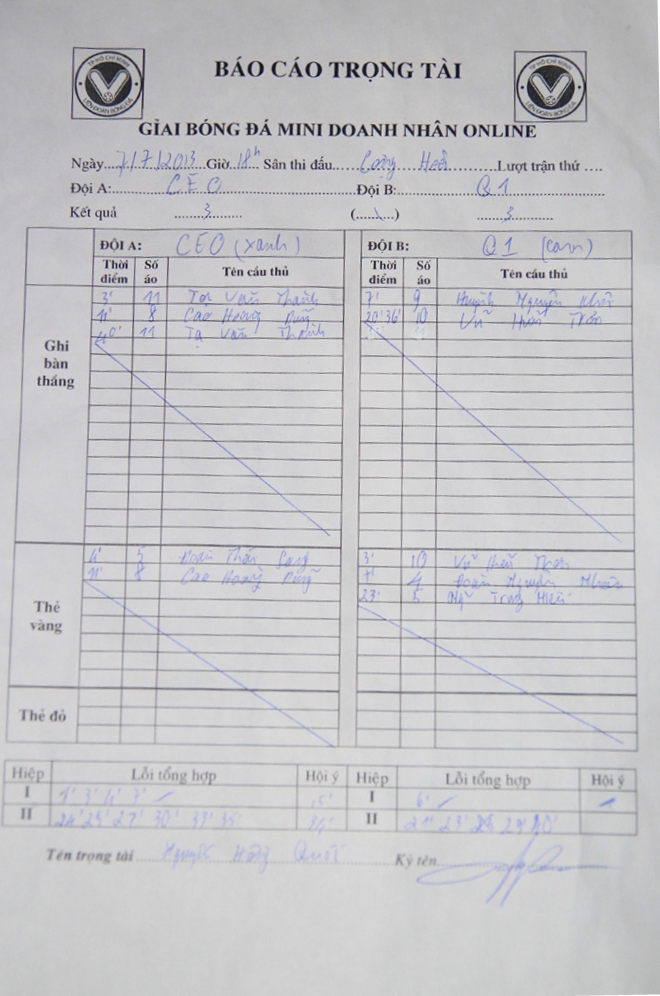 TP HỒ CHÍ MINH
LIÊN ĐOÀN BÓNG ĐÁ
BÁO CÁO TRỌNG TÀI
TP HỒ CHÍ MINH
LIÊN ĐOÀN BÓNG ĐÁ
GIẢI BÓNG ĐÁ MINI DOANH NHÂN ONLINE
Ngày 7/7/2013 Giờ 18h Sân thi đấu Cộng Hoà Lượt trận thứ ....
Đội A: CEO Đội B: Q1
Kết quả 3 (......) 3
ĐỘI A: CEO (xanh) ĐỘI B: Q1 (cam)
Thời điểm Số áo Tên cầu thủ Thời điểm Số áo Tên cầu thủ
Ghi bàn thắng
3' 11 Tạ Văn Thành 7' 9 Huỳnh Nguyên
11' 8 Cao Hoàng Dũng 20' 36' 10 Vũ Hiếu
40' 11 Tạ Văn Thành
Thẻ vàng
4' 5 Đoàn 3' 10 Vũ Hiếu
11' 8 Cao Hoàng Dũng 7' 4 Đoàn Nguyên
23' 5 Trọng Hiếu
Thẻ đỏ
Hiệp Lỗi tổng hợp Hội ý Hiệp Lỗi tổng hợp Hội ý
I 1' 3' 4' 7' 15' I 6'
II 24' 25' 27' 30' 33' 35' 34' II 21' 23' 29' 40'
Tên trọng tài Nguyễn Hồng Ký tên